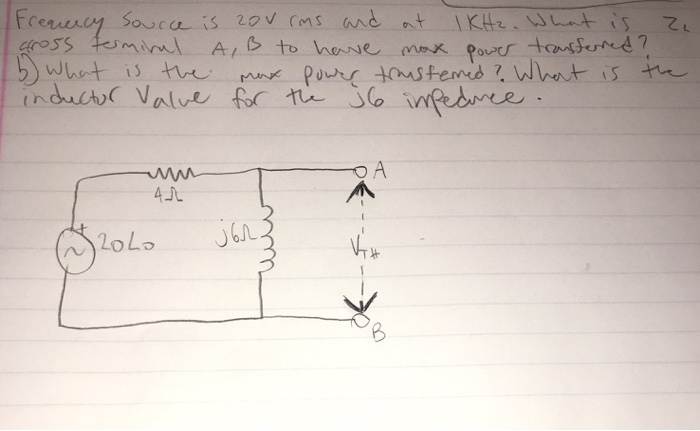 Frequency Source is 20V rms and at 1KHz. What is ZL
across terminal A, B to have max power transferred?
b) What is the max power transferred? What is the
inductor Value for the j6 impedance.
A
4Ω
20∠0
j6Ω
VTH
B